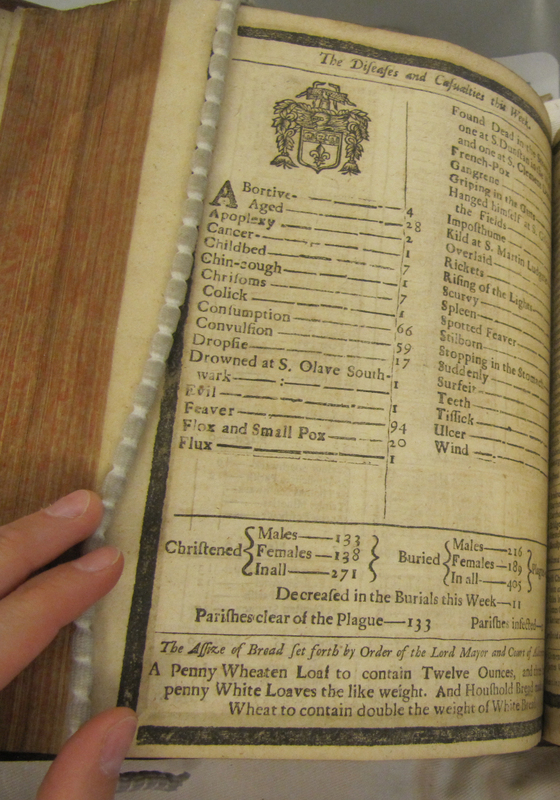 The Diſeaſes and Caſualties this Week.
ABortive 4
Aged 28
Apoplexy 2
Cancer 1
Childbed 7
Chin-cough 1
Chriſoms 7
Colick 1
Conſumption 66
Convulſion 59
Dropſie 17
Drowned at S. Olave South-
wark 1
Evil 1
Feaver 94
Flox and Small Pox 20
Flux 1
Found Dead in the
one at S. Dunſtan
and one at S. Clement
French-Pox
Gangrene
Griping in the Guts
Hanged himſelf at S.
the Fields
Impoſthume
Kild at S. Martin Ludgate
Overlaid
Rickets
Riſing of the Lights
Scurvy
Spleen
Spotted Feaver
Stilborn
Stopping in the Stomach
Suddenly
Surfeit
Teeth
Tiſſick
Ulcer
Wind
Chriſtened { Males 133
Females 138
In all 271 }
Buried { Males 216
Females 189
In all 405 }
Decreaſed in the Burials this Week 11
Pariſhes clear of the Plague 133 Pariſhes infected
The Aſſize of Bread ſet forth by Order of the Lord Mayor and Court of
A Penny Wheaten Loaf to contain Twelve Ounces, and
penny White Loaves the like weight. And Houſhold Bread
Wheat to contain double the weight of White